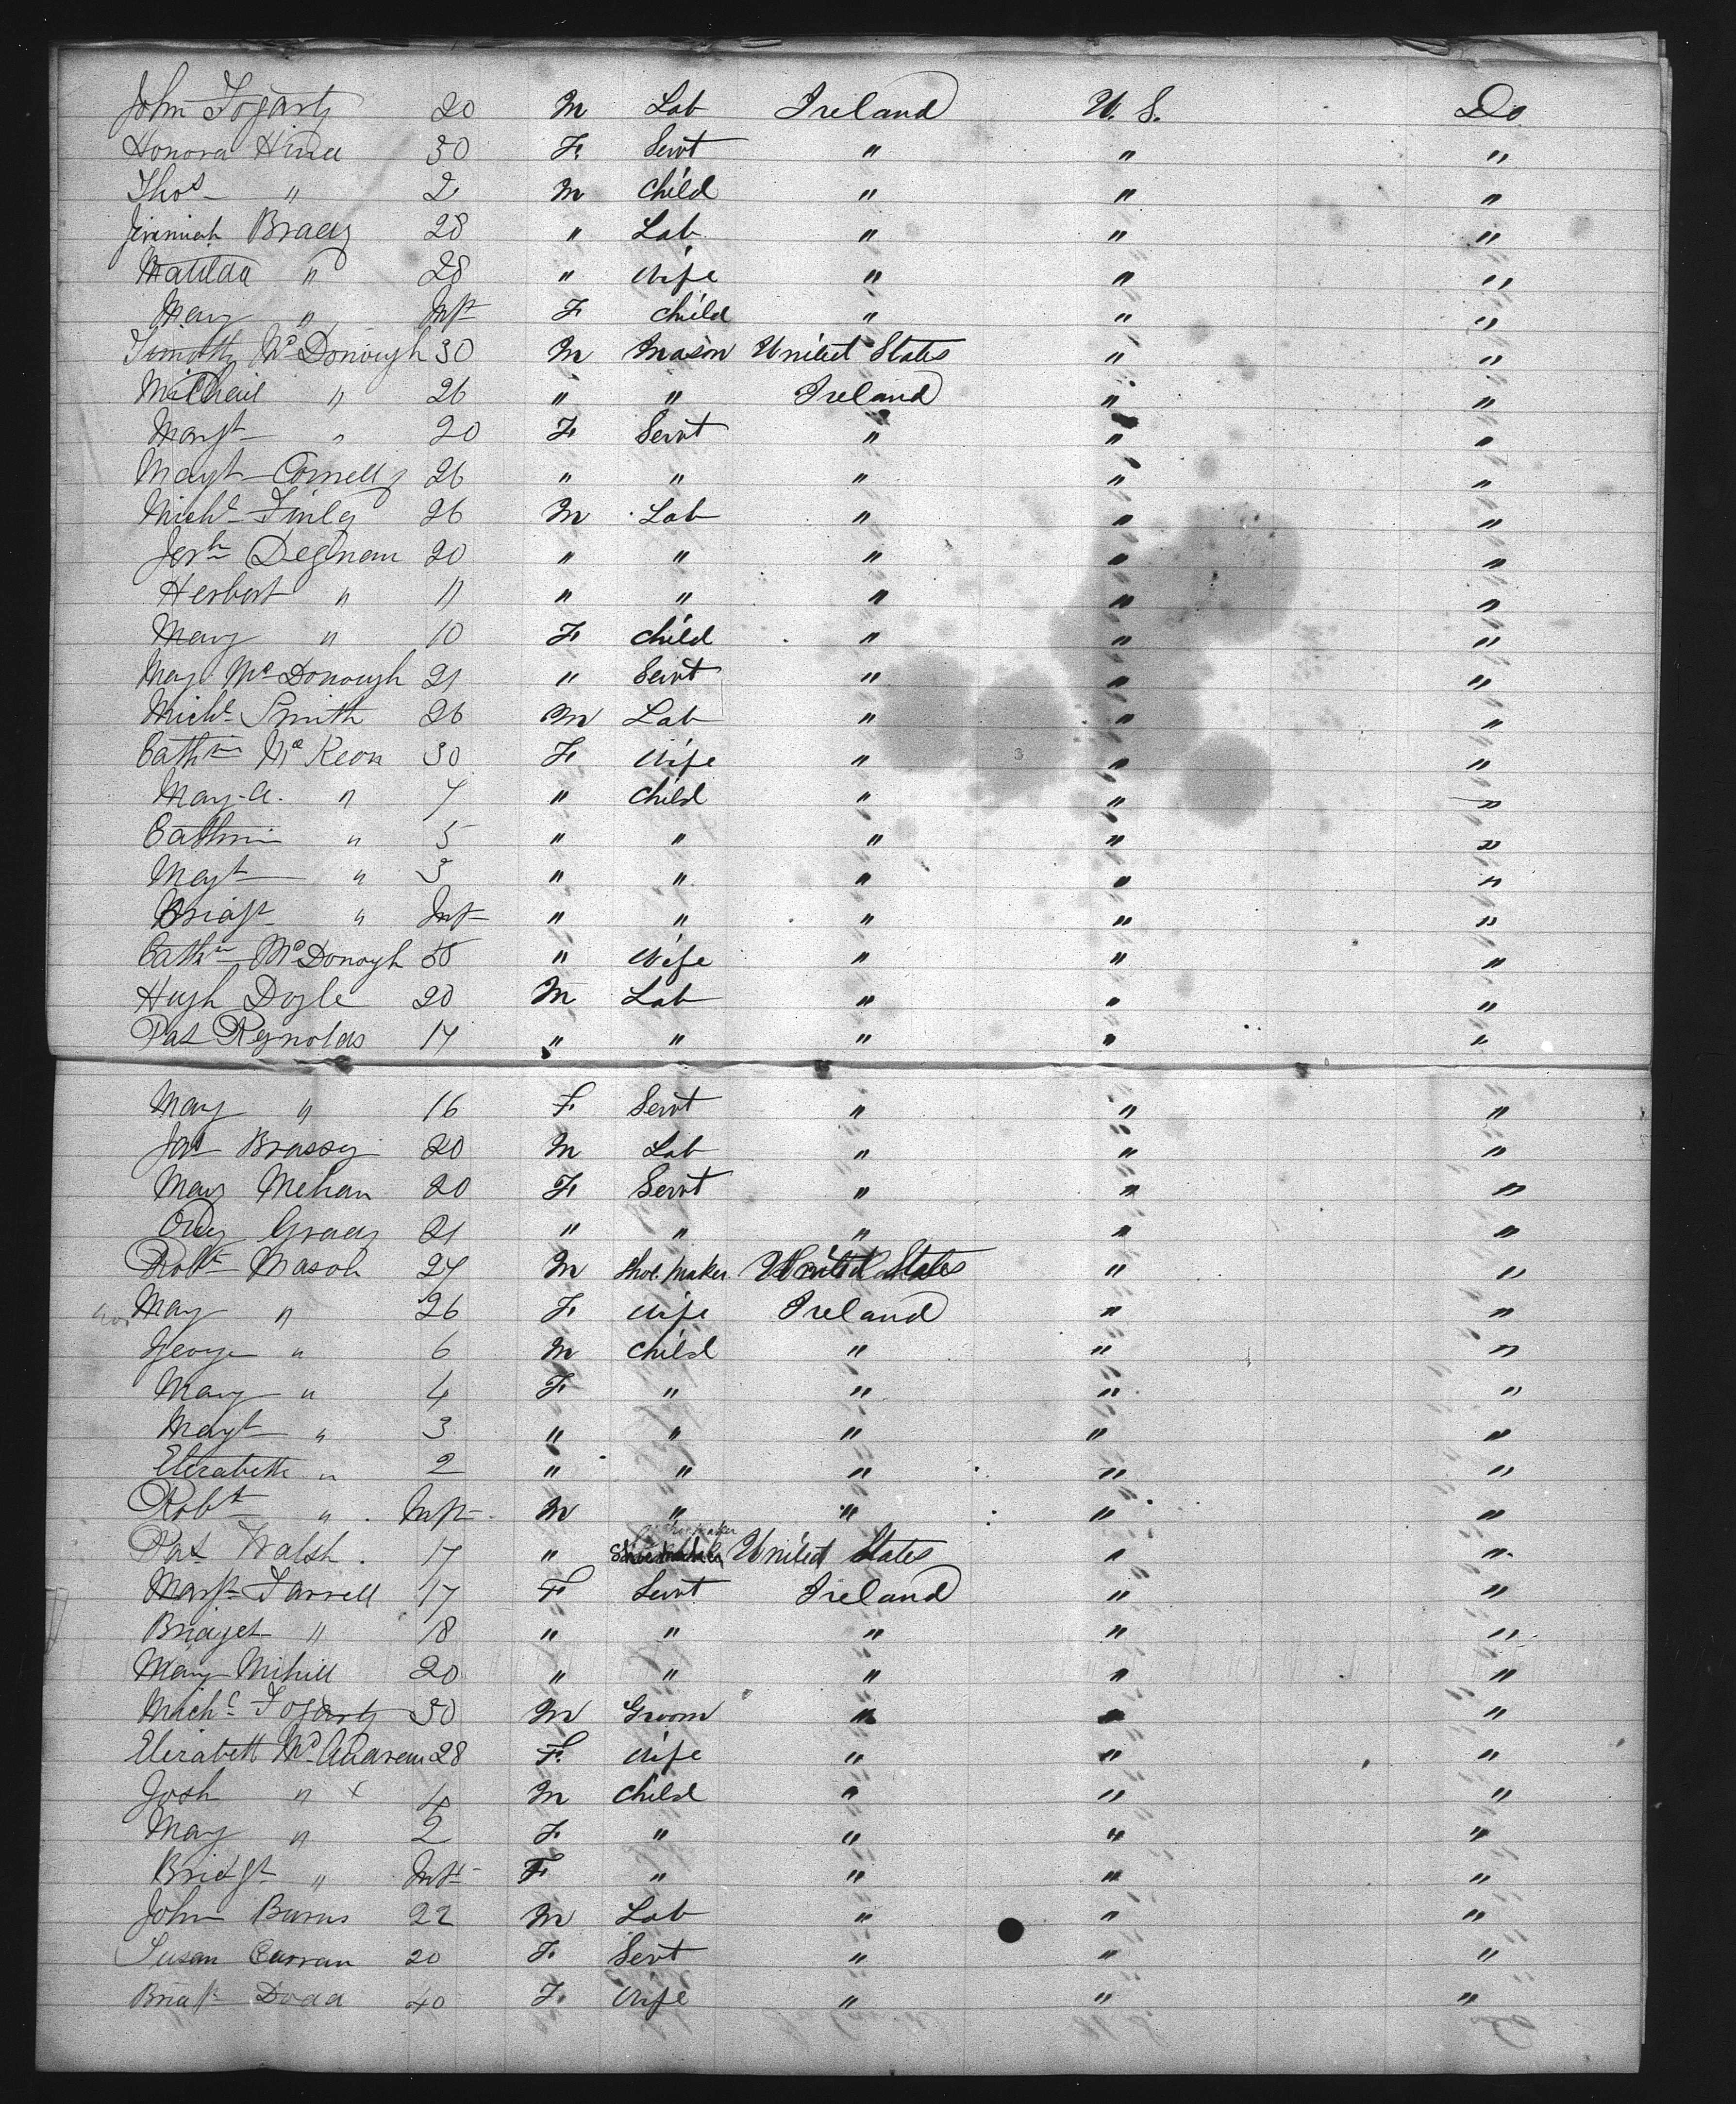 John Fogarty 20 M Lab Ireland U. S. Do
Honora Hind 30 F. Servt " " "
Thos " 2 M Child " " "
Jeremiah Brady 28 " Lab " " "
Matilda " 28 " Wife " " "
Mary " Inft F Child " " "
Timothy McDonough 30 M Mason United States " "
Michail " 26 " " Ireland " "
Margt " 20 F Servt " " "
Magt Connelly 26 " " " " "
Michl Finley 26 M Lab " " "
Degnan 20 " " " " "
Herbert " 11 " " " " "
Mary " 10 F Child " " "
Mary McDonough 21 " Servt " " "
Michl Smith 26 M Lab " " "
Cathn McKeon 30 F Wife " " "
Mary A. " 7 " Child " " "
Cathrin " 5 " " " " "
Magt " 3 " " " " "
Bridgt " Inft " " " " "
Cathn McDonogh 58 " Wife " " "
Hugh Doyle 20 M Lab " " "
Pat Reynolds 17 " " " " "
Mary " 16 F Servt " " "
Jas Brassy 20 M Lab " " "
Mary Mehan 20 F Servt " " "
Grady 21 " " " " "
Robt Mason 27 M Shoe Maker United States " "
Mary " 26 F Wife Ireland " "
George " 6 M Child " " "
Mary " 4 F " " " "
Magt " 3 " " " " "
Elizabeth " 2 " " " " "
Robt " Inft M " " " "
Pat Walsh 17 " Shoemaker United States " "
Margt Farrell 17 F Servt Ireland " "
Bridget " 18 " " " " "
Mary Mihill 20 " " " " "
Michl Fogarty 30 M Groom " " "
Elizabeth 28 F. Wife " " "
Josh " x 4 M Child " " "
Mary " 2 F " " " "
Bridgt " Inft F " " " "
John Burns 22 M Lab " " "
Susan Curran 20 F. Servt " " "
Bridgt Dodd 40 F. Wife " " "